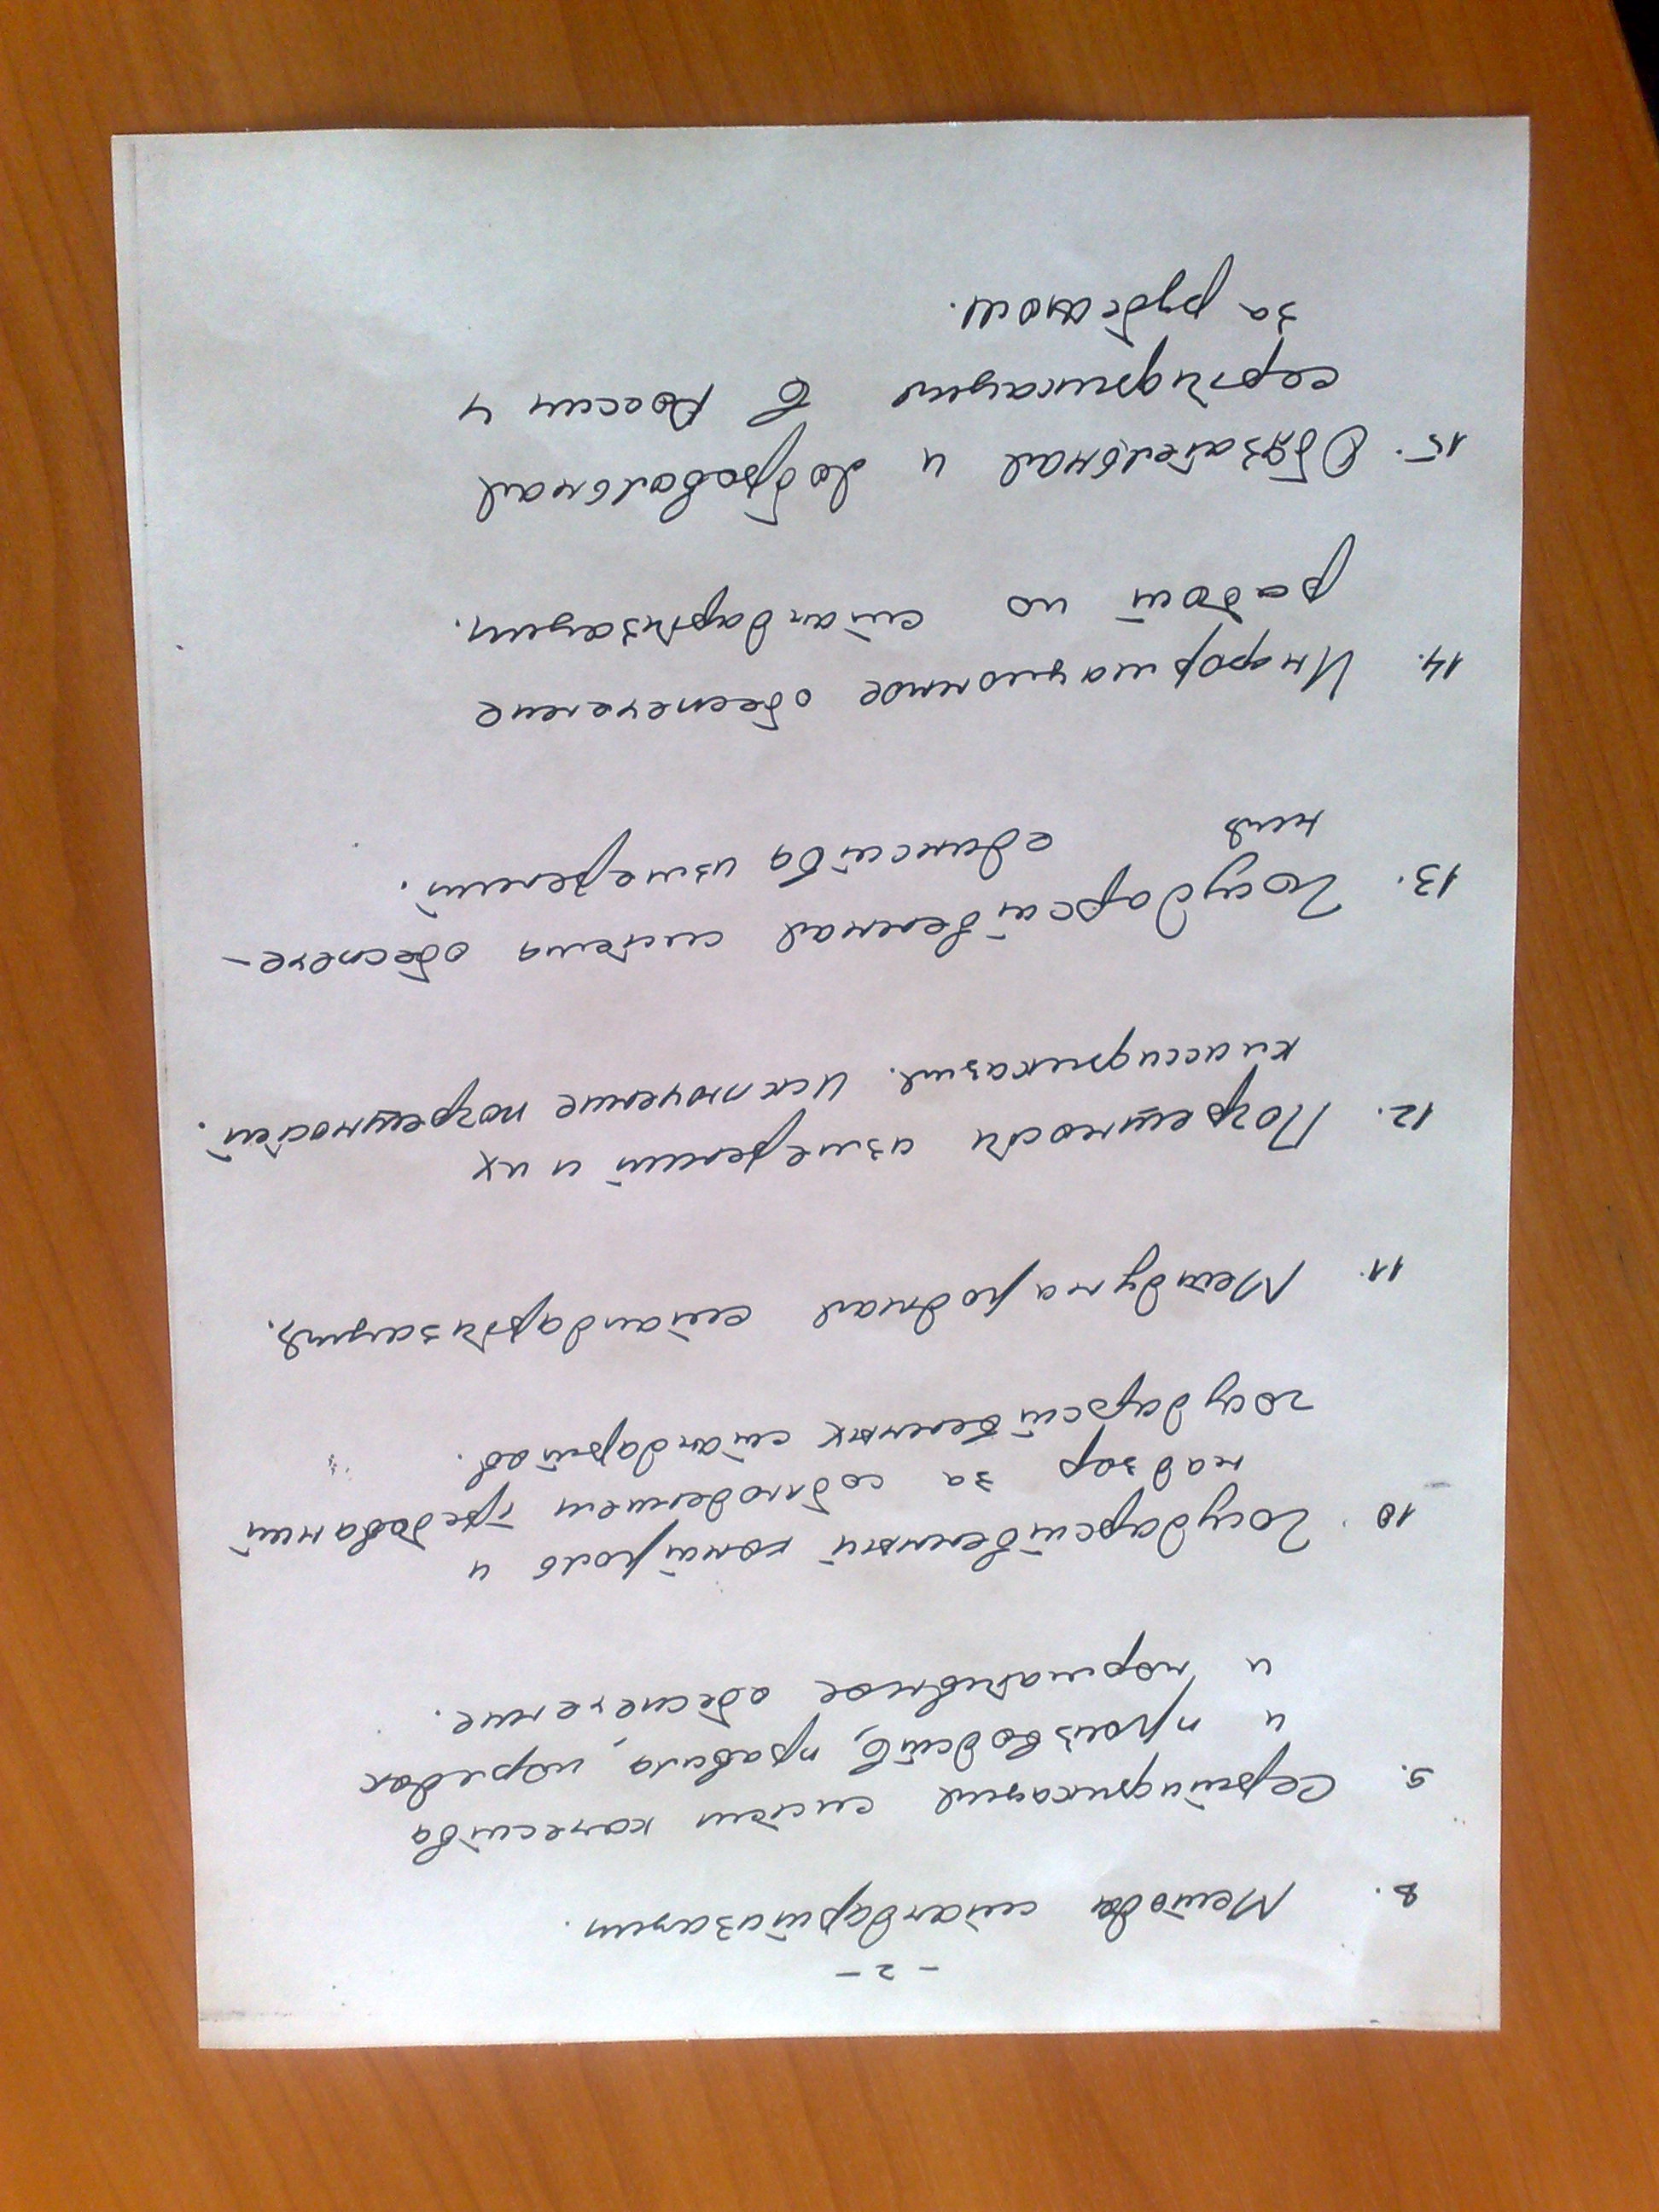 - 2 -
8. Методы стандартизации.
9. Сертификация систем качества
и производств, правила, порядок
и нормативное обеспечение.
10. Государственный контроль и
надзор за соблюдением требований
государственных стандартов.
11. Международная стандартизация.
12. Погрешности измерений и их
классификация. Исключение погрешностей.
13. Государственная система обеспече-
ния единства измерений.
14. Информационное обеспечение
работ по стандартизации.
15. Обязательная и добровольная
сертификация в России и
за рубежом.